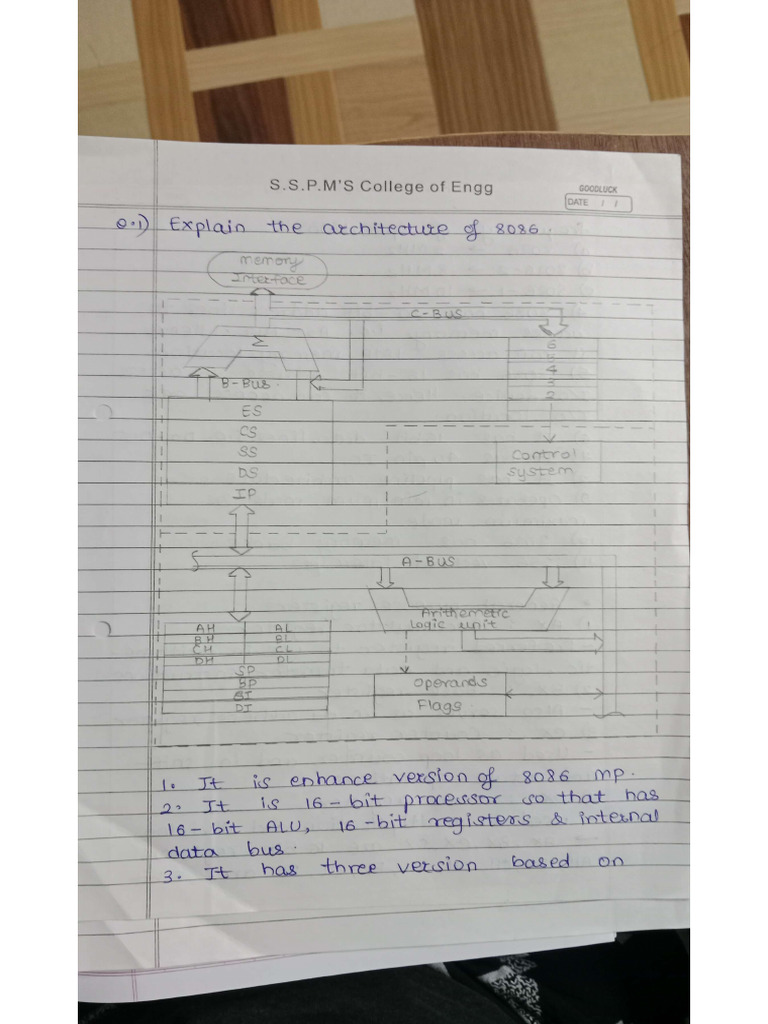 S.S.P.M'S College of Engg
GOODLUCK
DATE / /
Q.1) Explain the architecture of 8086.
memory
Interface
C-BUS
Σ
6
5
4
3
2
B-Bus.
ES
CS
SS
DS
IP
Control
system
A-BUS
Arithemetic
logic unit
AH AL
BH BL
CH CL
DH DL
SP
BP
SI
DI
Operands
Flags
1. It is enhance version of 8086 mp.
2. It is 16-bit processor so that has
16-bit ALU, 16-bit registers & internal
data bus.
3. It has three version based on